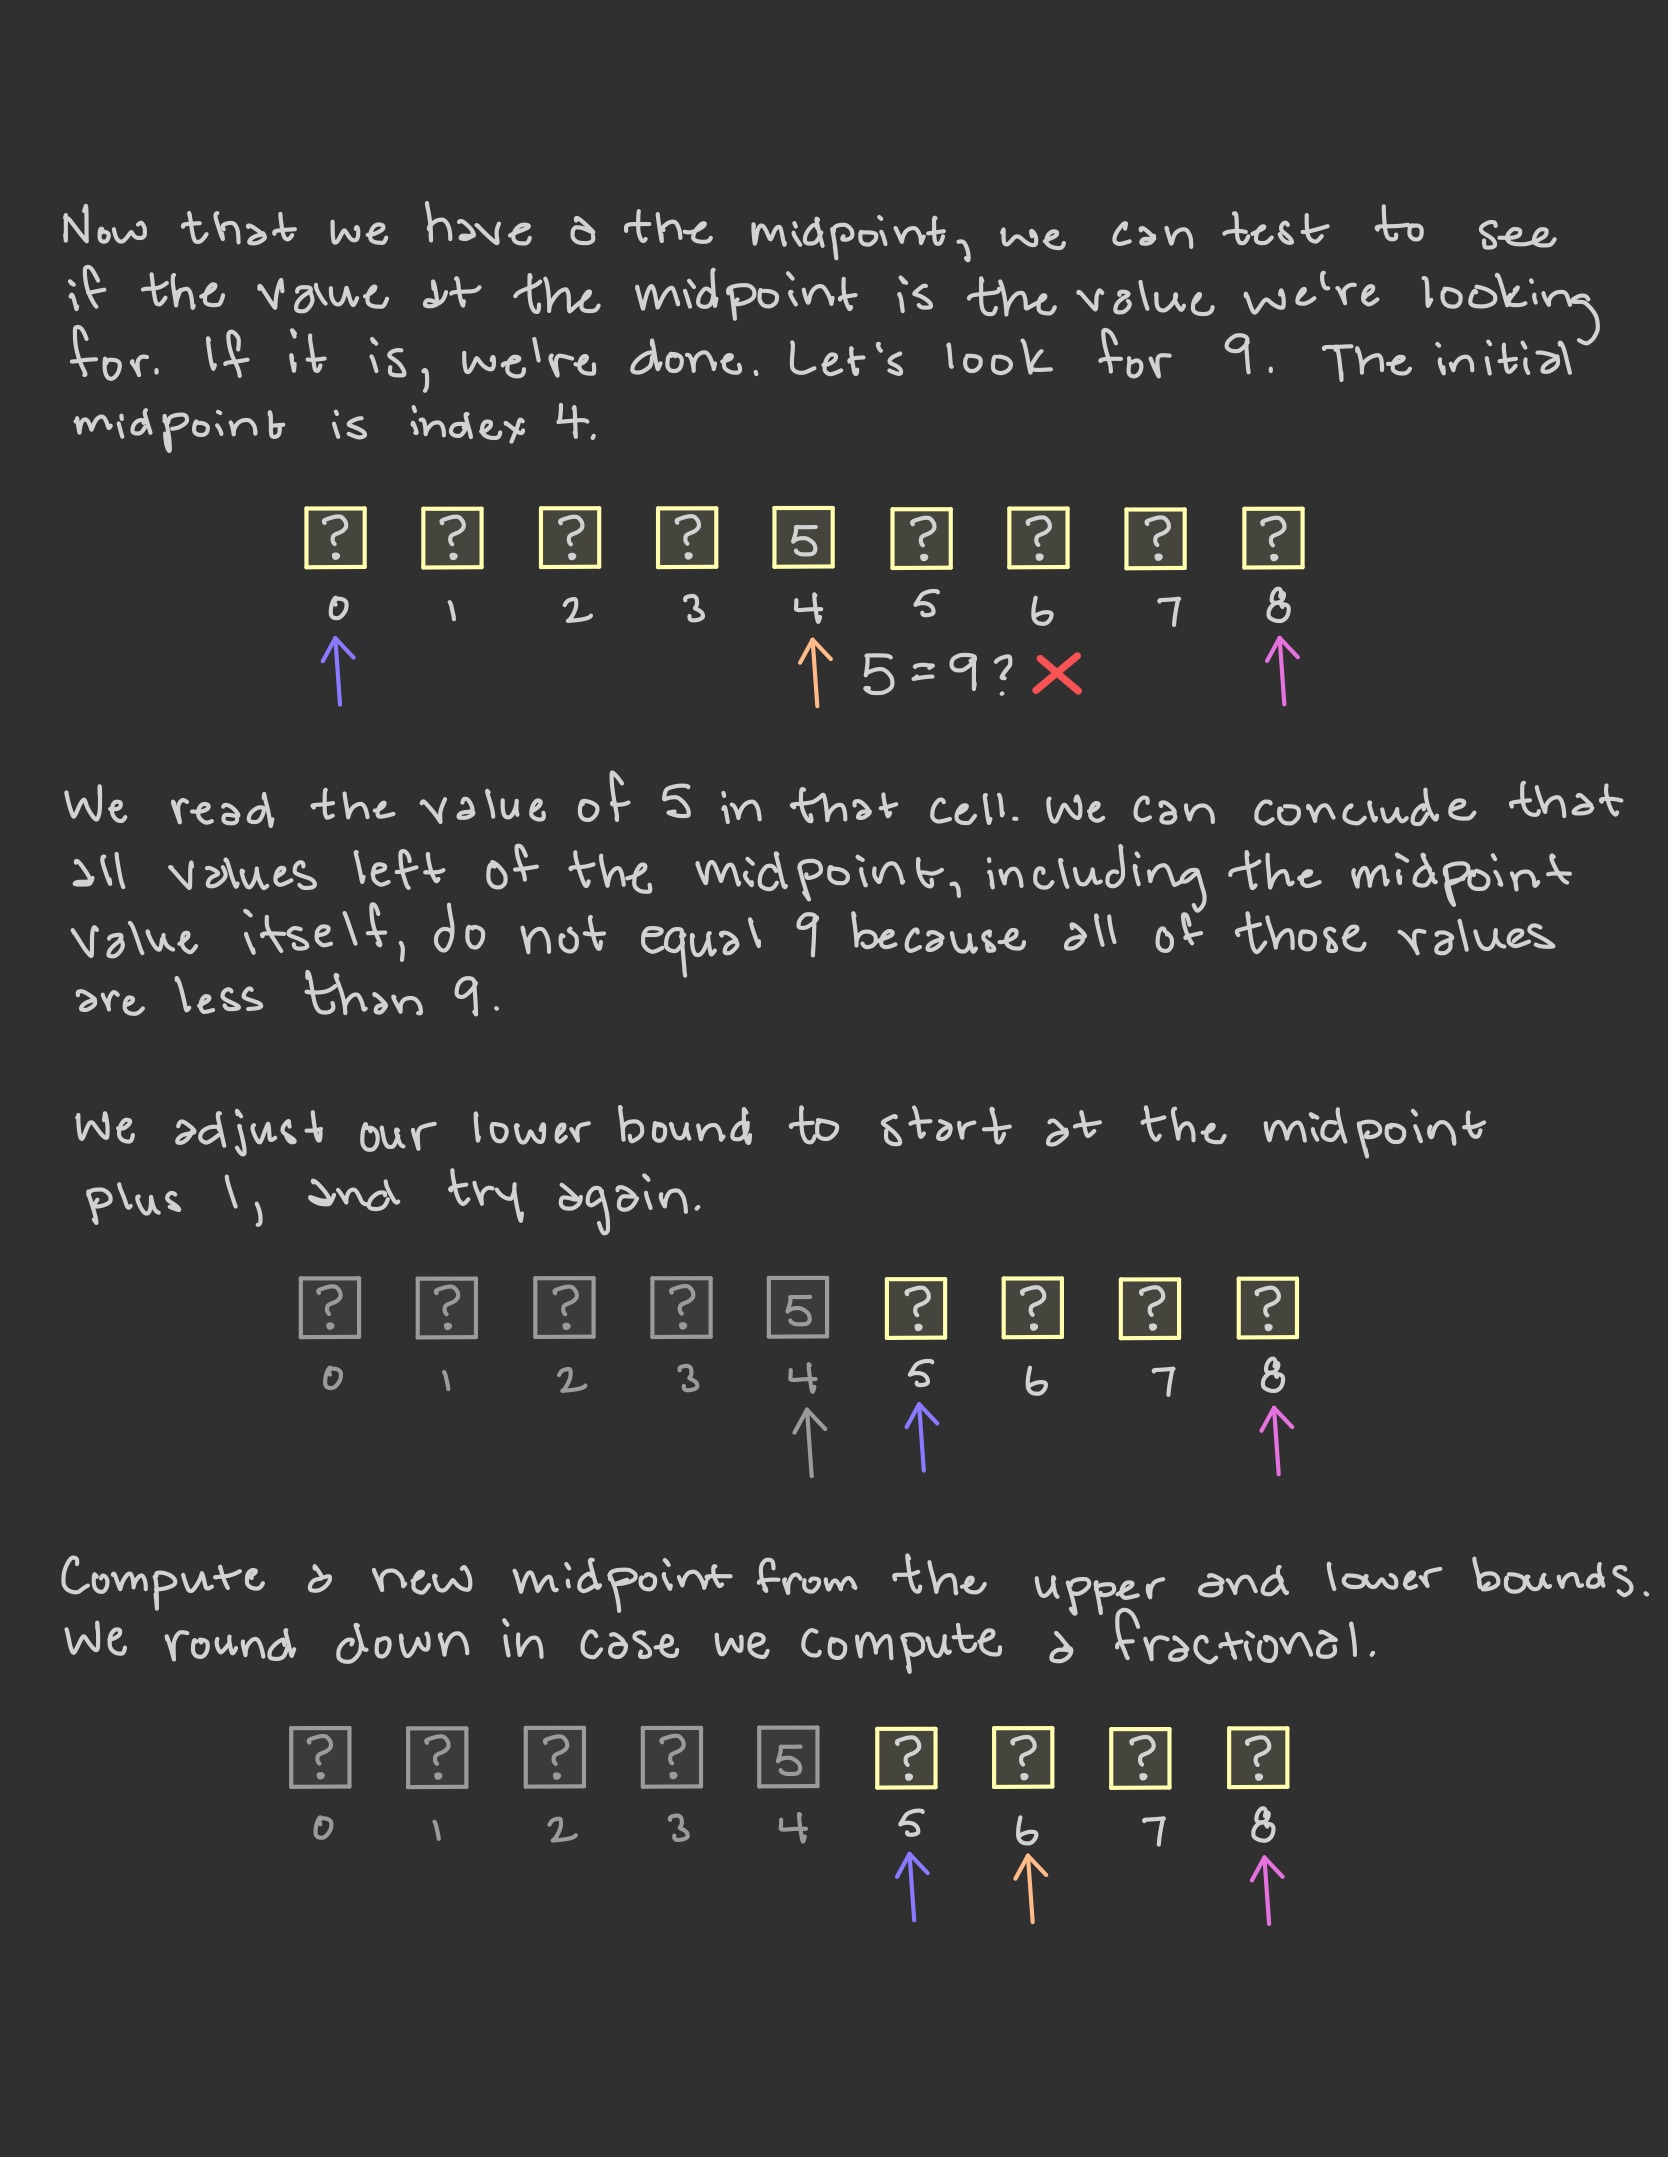 Now that we have a the midpoint, we can test to see
if the value at the midpoint is the value we're looking
for. If it is, we're done. Let's look for 9. The initial
midpoint is index 4.
? ? ? ? 5 ? ? ? ?
0 1 2 3 4 5 6 7 8
5 = 9 ?
We read the value of 5 in that cell. We can conclude that
all values left of the midpoint, including the midpoint
value itself, do not equal 9 because all of those values
are less than 9.
We adjust our lower bound to start at the midpoint
plus 1, and try again.
? ? ? ? 5 ? ? ? ?
0 1 2 3 4 5 6 7 8
Compute a new midpoint from the upper and lower bounds.
We round down in case we compute a fractional.
? ? ? ? 5 ? ? ? ?
0 1 2 3 4 5 6 7 8